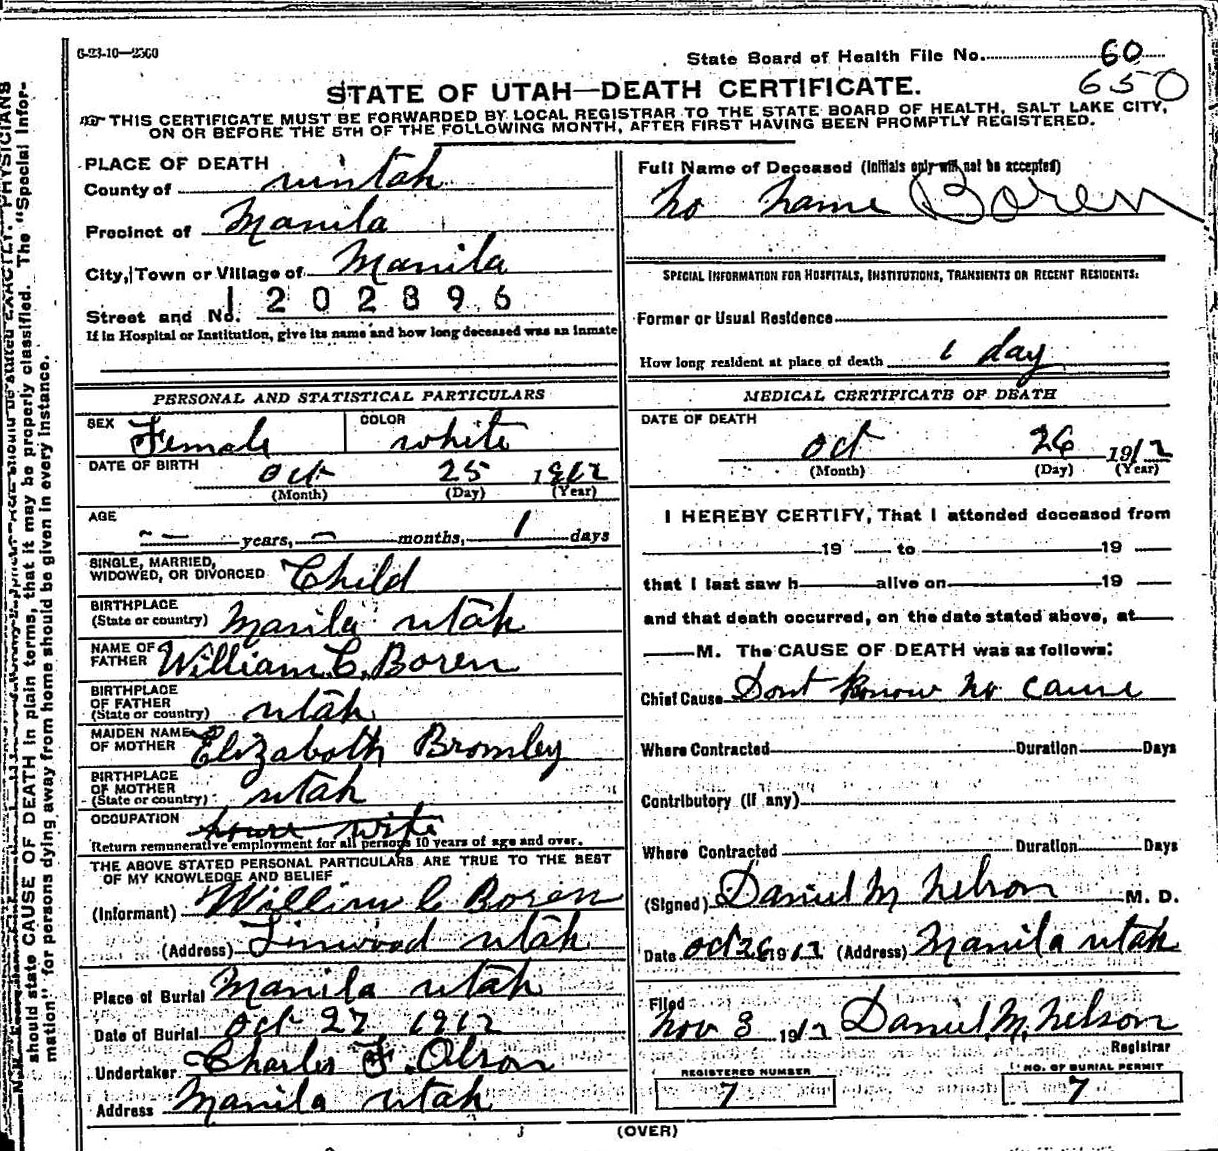 6-23-10—2500
State Board of Health File No. 60
650
STATE OF UTAH—DEATH CERTIFICATE.
THIS CERTIFICATE MUST BE FORWARDED BY LOCAL REGISTRAR TO THE STATE BOARD OF HEALTH, SALT LAKE CITY,
ON OR BEFORE THE 5TH OF THE FOLLOWING MONTH, AFTER FIRST HAVING BEEN PROMPTLY REGISTERED.
PLACE OF DEATH
County of uintah
Precinct of Manila
City, Town or Village of Manila
1202896
Street and No.
If in Hospital or Institution, give its name and how long deceased was an inmate
Full Name of Deceased (Initials only will not be accepted)
no name Boren
SPECIAL INFORMATION FOR HOSPITALS, INSTITUTIONS, TRANSIENTS OR RECENT RESIDENTS:
Former or Usual Residence
How long resident at place of death 1 day
PERSONAL AND STATISTICAL PARTICULARS
SEX Female COLOR white
DATE OF BIRTH oct 25 1912
(Month) (Day) (Year)
AGE — years, — months, 1 days
SINGLE, MARRIED,
WIDOWED, OR DIVORCED Child
BIRTHPLACE
(State or country) Manila utah
NAME OF
FATHER William C. Boren
BIRTHPLACE
OF FATHER
(State or country) utah
MAIDEN NAME
OF MOTHER Elizabeth Bromley
BIRTHPLACE
OF MOTHER
(State or country) utah
OCCUPATION house wife
Return remunerative employment for all persons 10 years of age and over.
THE ABOVE STATED PERSONAL PARTICULARS ARE TRUE TO THE BEST
OF MY KNOWLEDGE AND BELIEF
(Informant) William C Boren
(Address) Linwood utah
Place of Burial Manila utah
Date of Burial oct 27 1912
Undertaker Charles F. Olson
Address Manila utah
MEDICAL CERTIFICATE OF DEATH
DATE OF DEATH
oct 26 1912
(Month) (Day) (Year)
I HEREBY CERTIFY, That I attended deceased from
19 to 19
that I last saw h alive on 19
and that death occurred, on the date stated above, at
M. The CAUSE OF DEATH was as follows:
Chief Cause Dont know no cause
Where Contracted Duration Days
Contributory (if any)
Where Contracted Duration Days
(Signed) Daniel M Nelson M. D.
Date oct 26 1912 (Address) Manila utah
Filed
Nov 3 1912 Daniel M. Nelson
Registrar
REGISTERED NUMBER
7
NO. OF BURIAL PERMIT
7
(OVER)
should state CAUSE OF DEATH in plain terms, that it may be properly classified. The "Special Infor-
mation" for persons dying away from home should be given in every instance.